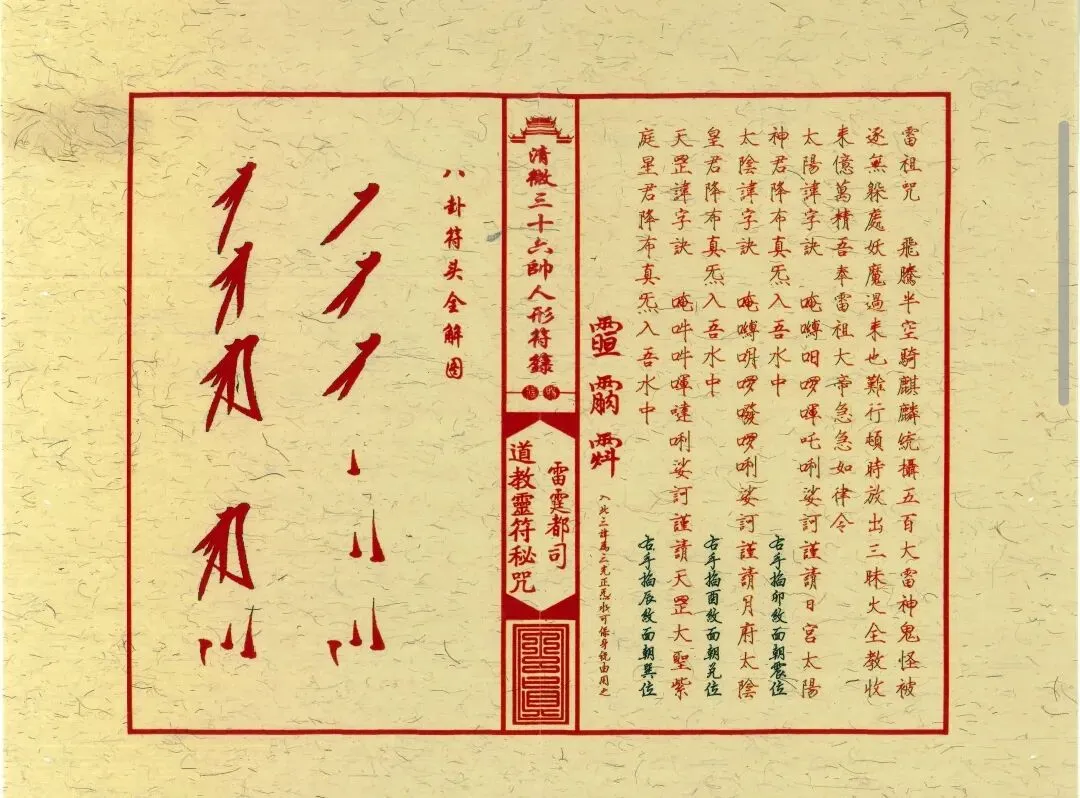 雷祖咒 飛騰半空騎麒麟統攝五百大雷神鬼怪被
逐無躲處妖魔過来也難行頓時放出三昧火全教收
来億萬精吾奉雷祖大帝急急如律令
太陽諱字訣 唵㗘呬啰㖸吒唎娑訶謹請日宮太陽
神君降布真炁入吾水中
右手掐卯紋面朝震位
太陰諱字訣 唵㗘明啰㘔啰唎娑訶謹請月府太陰
皇君降布真炁入吾水中
右手掐酉紋面朝兑位
天罡諱字訣 唵吽吽㖸噠唎娑訶謹請天罡大聖紫
庭星君降布真炁入吾水中
右手掐辰紋面朝巽位
入此三諱為三光正炁水可保身統由用之
清微三十六帥人形符籙
雷霆都司
道教靈符秘咒
八卦符头全解图